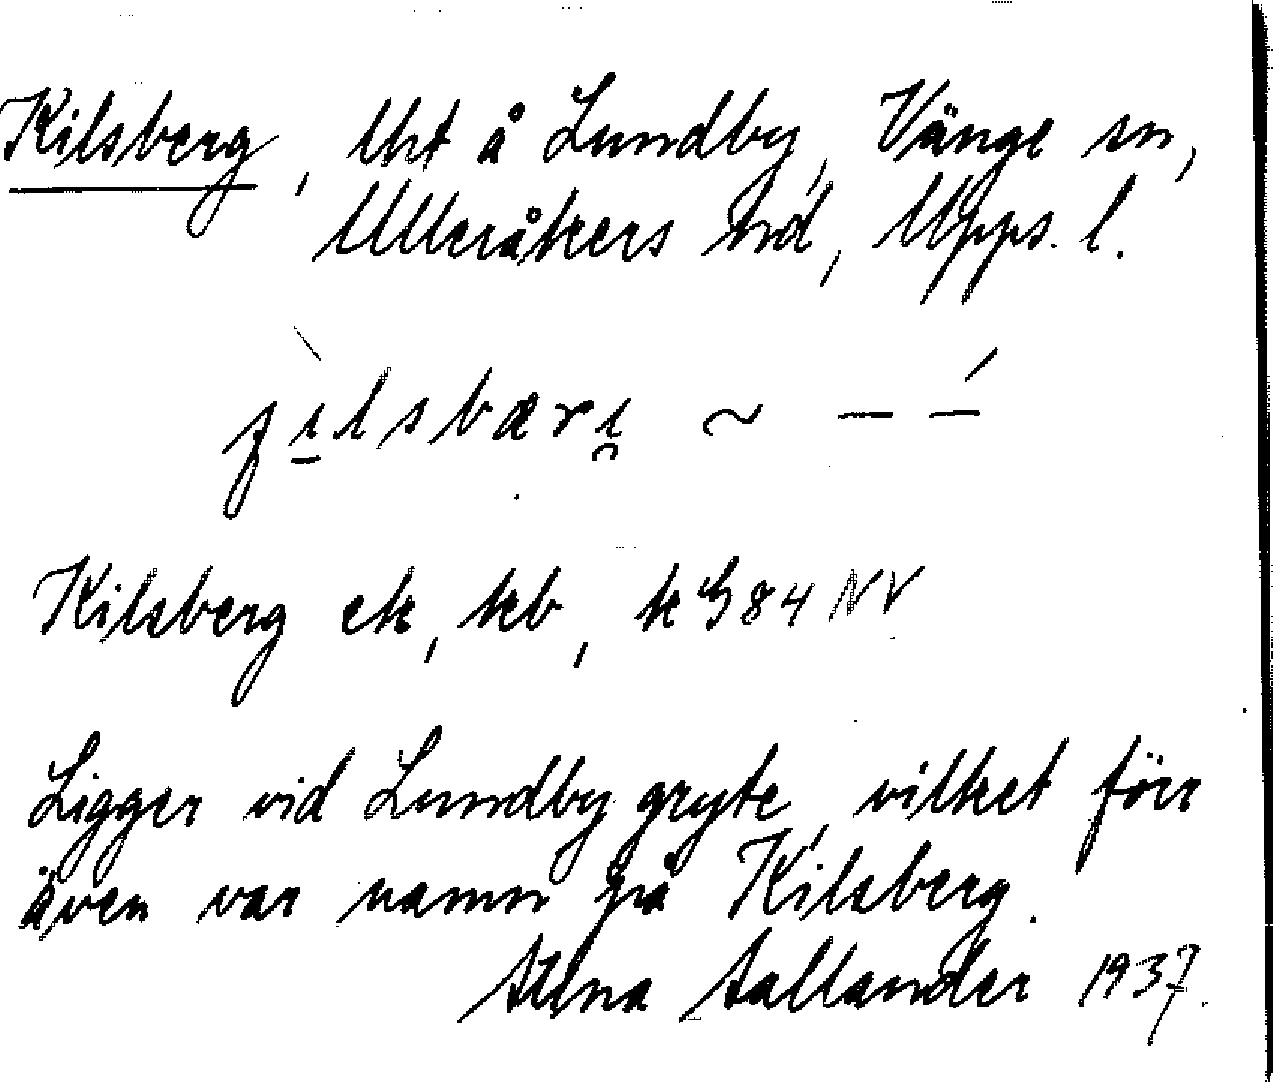 Kilsberg, lht å Lundby, Vänge sn,
Ulleråkers hd, Upps. l.
ʒı̱lsbærı̯ ~ – –́
Kilsberg ek, kb, k G 84 NV
Ligger vid Lundby gryte, vilket förr
även var namn på Kilsberg.
Stina Aallander 1937.